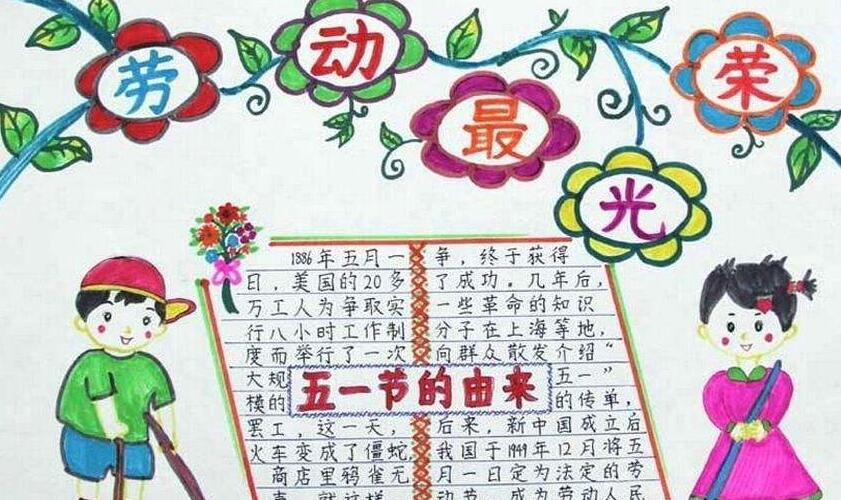 劳动最光荣
五一节的由来
1886年五月一
日，美国的20多
万工人为争取实
行八小时工作制
度而举行了一次
大规
模的
罢工，这一天，
火车变成了僵蛇，
商店里鸦雀无
就这样
争，终于获得
了成功。几年后，
一些革命的知识
分子在上海等地，
向群众散发介绍“
五一”
的传单，
后来，新中国成立后
我国于1949年12月将五
月一日定为法定的劳
动节，成为劳动人民